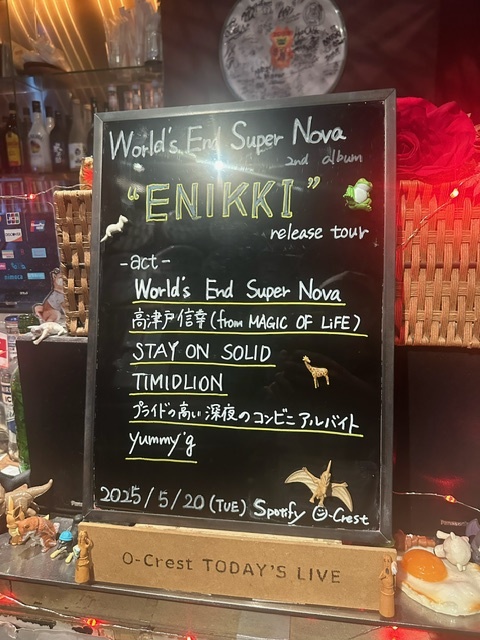 World's End Super Nova
2nd album
"ENIKKI"
release tour
-act-
World's End Super Nova
高津戸信幸(from MAGIC OF LiFE)
STAY ON SOLID
TIMIDLION
プライドの高い深夜のコンビニアルバイト
yummy'g
2025/5/20(TUE) Spotify O-Crest
O-Crest TODAY'S LIVE